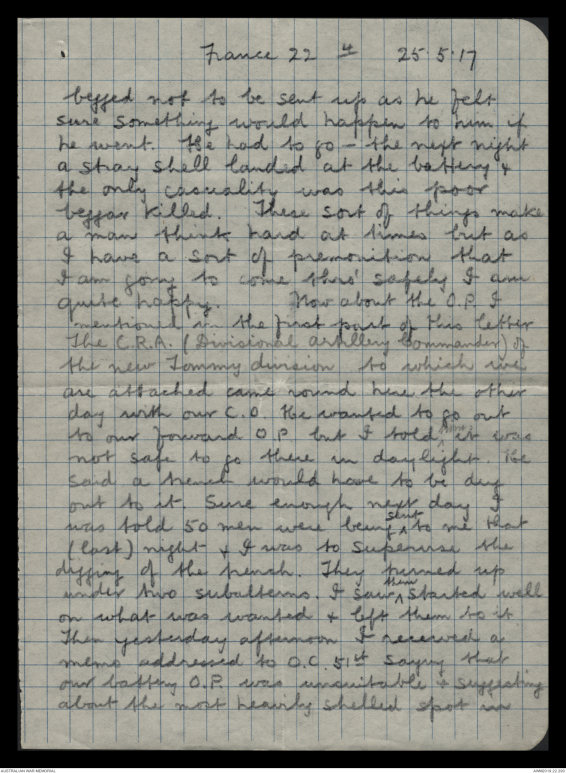 France 22 4 25.5.17
begged not to be sent up as he felt
sure something would happen to him if
he went. He had to go - the next night
a stray shell landed at the battery &
the only casuality was this poor
beggar killed. These sort of things make
a man think hard at times but as
I have a sort of premonition that
I am going to come thro' safely I am
quite happy. Now about the O.P. I
mentioned in the first part of this letter
The C.R.A. (Divisional Artillery Commander) of
the new Tommy division to which we
are attached came round here the other
day with our C.O. He wanted to go out
to our forward O P but I told him it was
not safe to go there in daylight. He
said a trench would have to be dug
out to it. Sure enough next day I
was told 50 men were being sent to me that
(last) night & I was to supervise the
digging of the trench. They turned up
under two subalterns. I saw them started well
on what was wanted & left them to it
Then yesterday afternoon I received a
memo addressed to O.C. 51st saying that
our battery O.P. was unsuitable & suggesting
about the most heavily shelled spot in
AUSTRALIAN WAR MEMORIAL